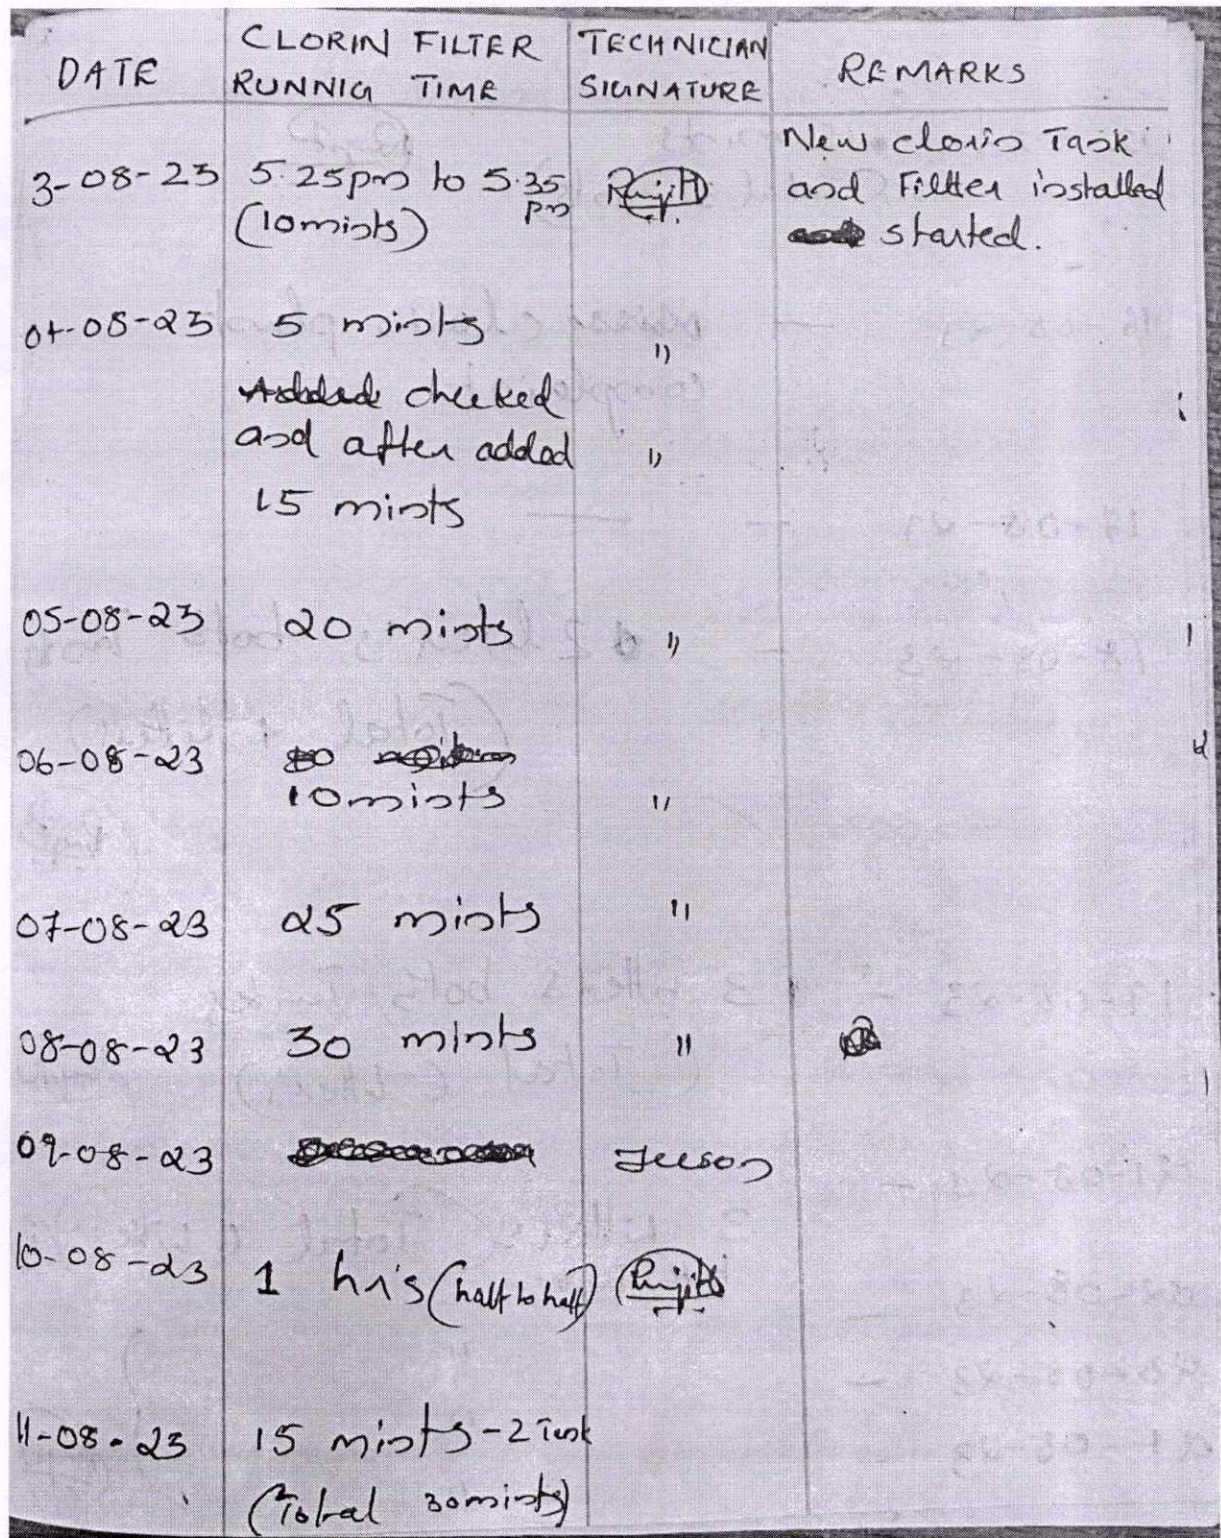 DATE
CLORIN FILTER
RUNNIG TIME
TECHNICIAN
SIGNATURE
REMARKS
3-08-23
5.25pm to 5.35
pm
(10mints)
Renjith
New clorin Task
and Fillter installed
started.
04-08-23
5 mints
"
Added checked
and after added
"
15 mints
05-08-23
20 mints
"
06-08-23
10mints
"
07-08-23
25 mints
"
08-08-23
30 mints
"
09-08-23
Jeeson
10-08-23
1 hr's (half to half)
Renjith
11-08-23
15 mints - 2 Task
(Total 30mints)